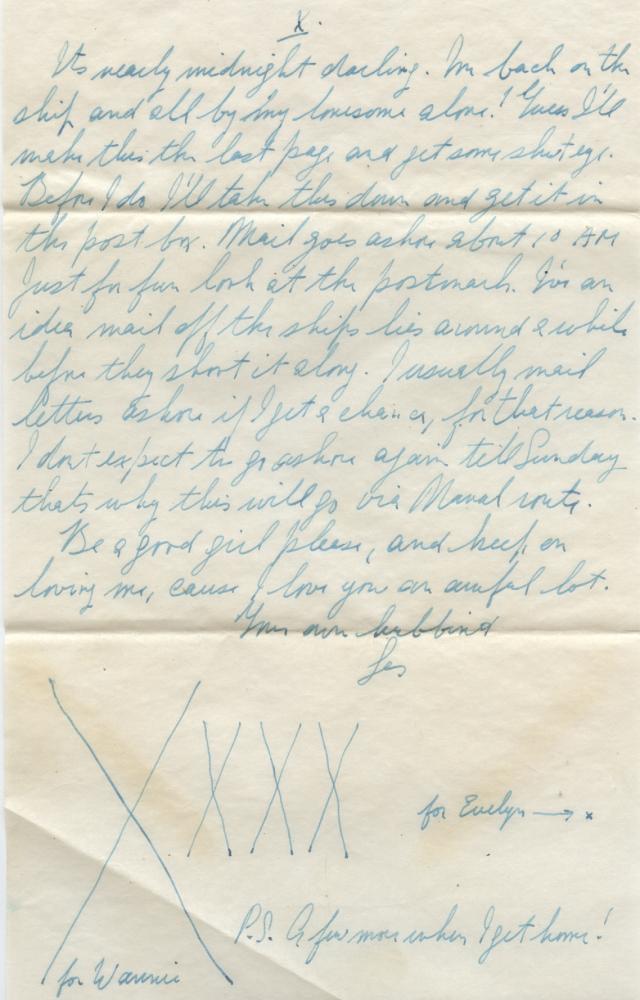 X.
Its nearly midnight darling. Im back on the
ship and all by my lonesome alone! Guess I'll
make this the last page and get some shuteye.
Before I do I'll take this down and get it in
the post box. Mail goes ashore about 10 AM
Just for fun look at the postmark. I've an
idea mail off the ships lies around a while
before they shoot it along. I usually mail
letters ashore if I get a chance, for that reason.
I dont expect to go ashore again till Sunday
thats why this will go via Naval route.
Be a good girl please, and keep on
loving me, cause I love you an awful lot.
Your own hubbind
Les
X X X X
for Evelyn → x
P.S. A few more when I get home!
for Wannie